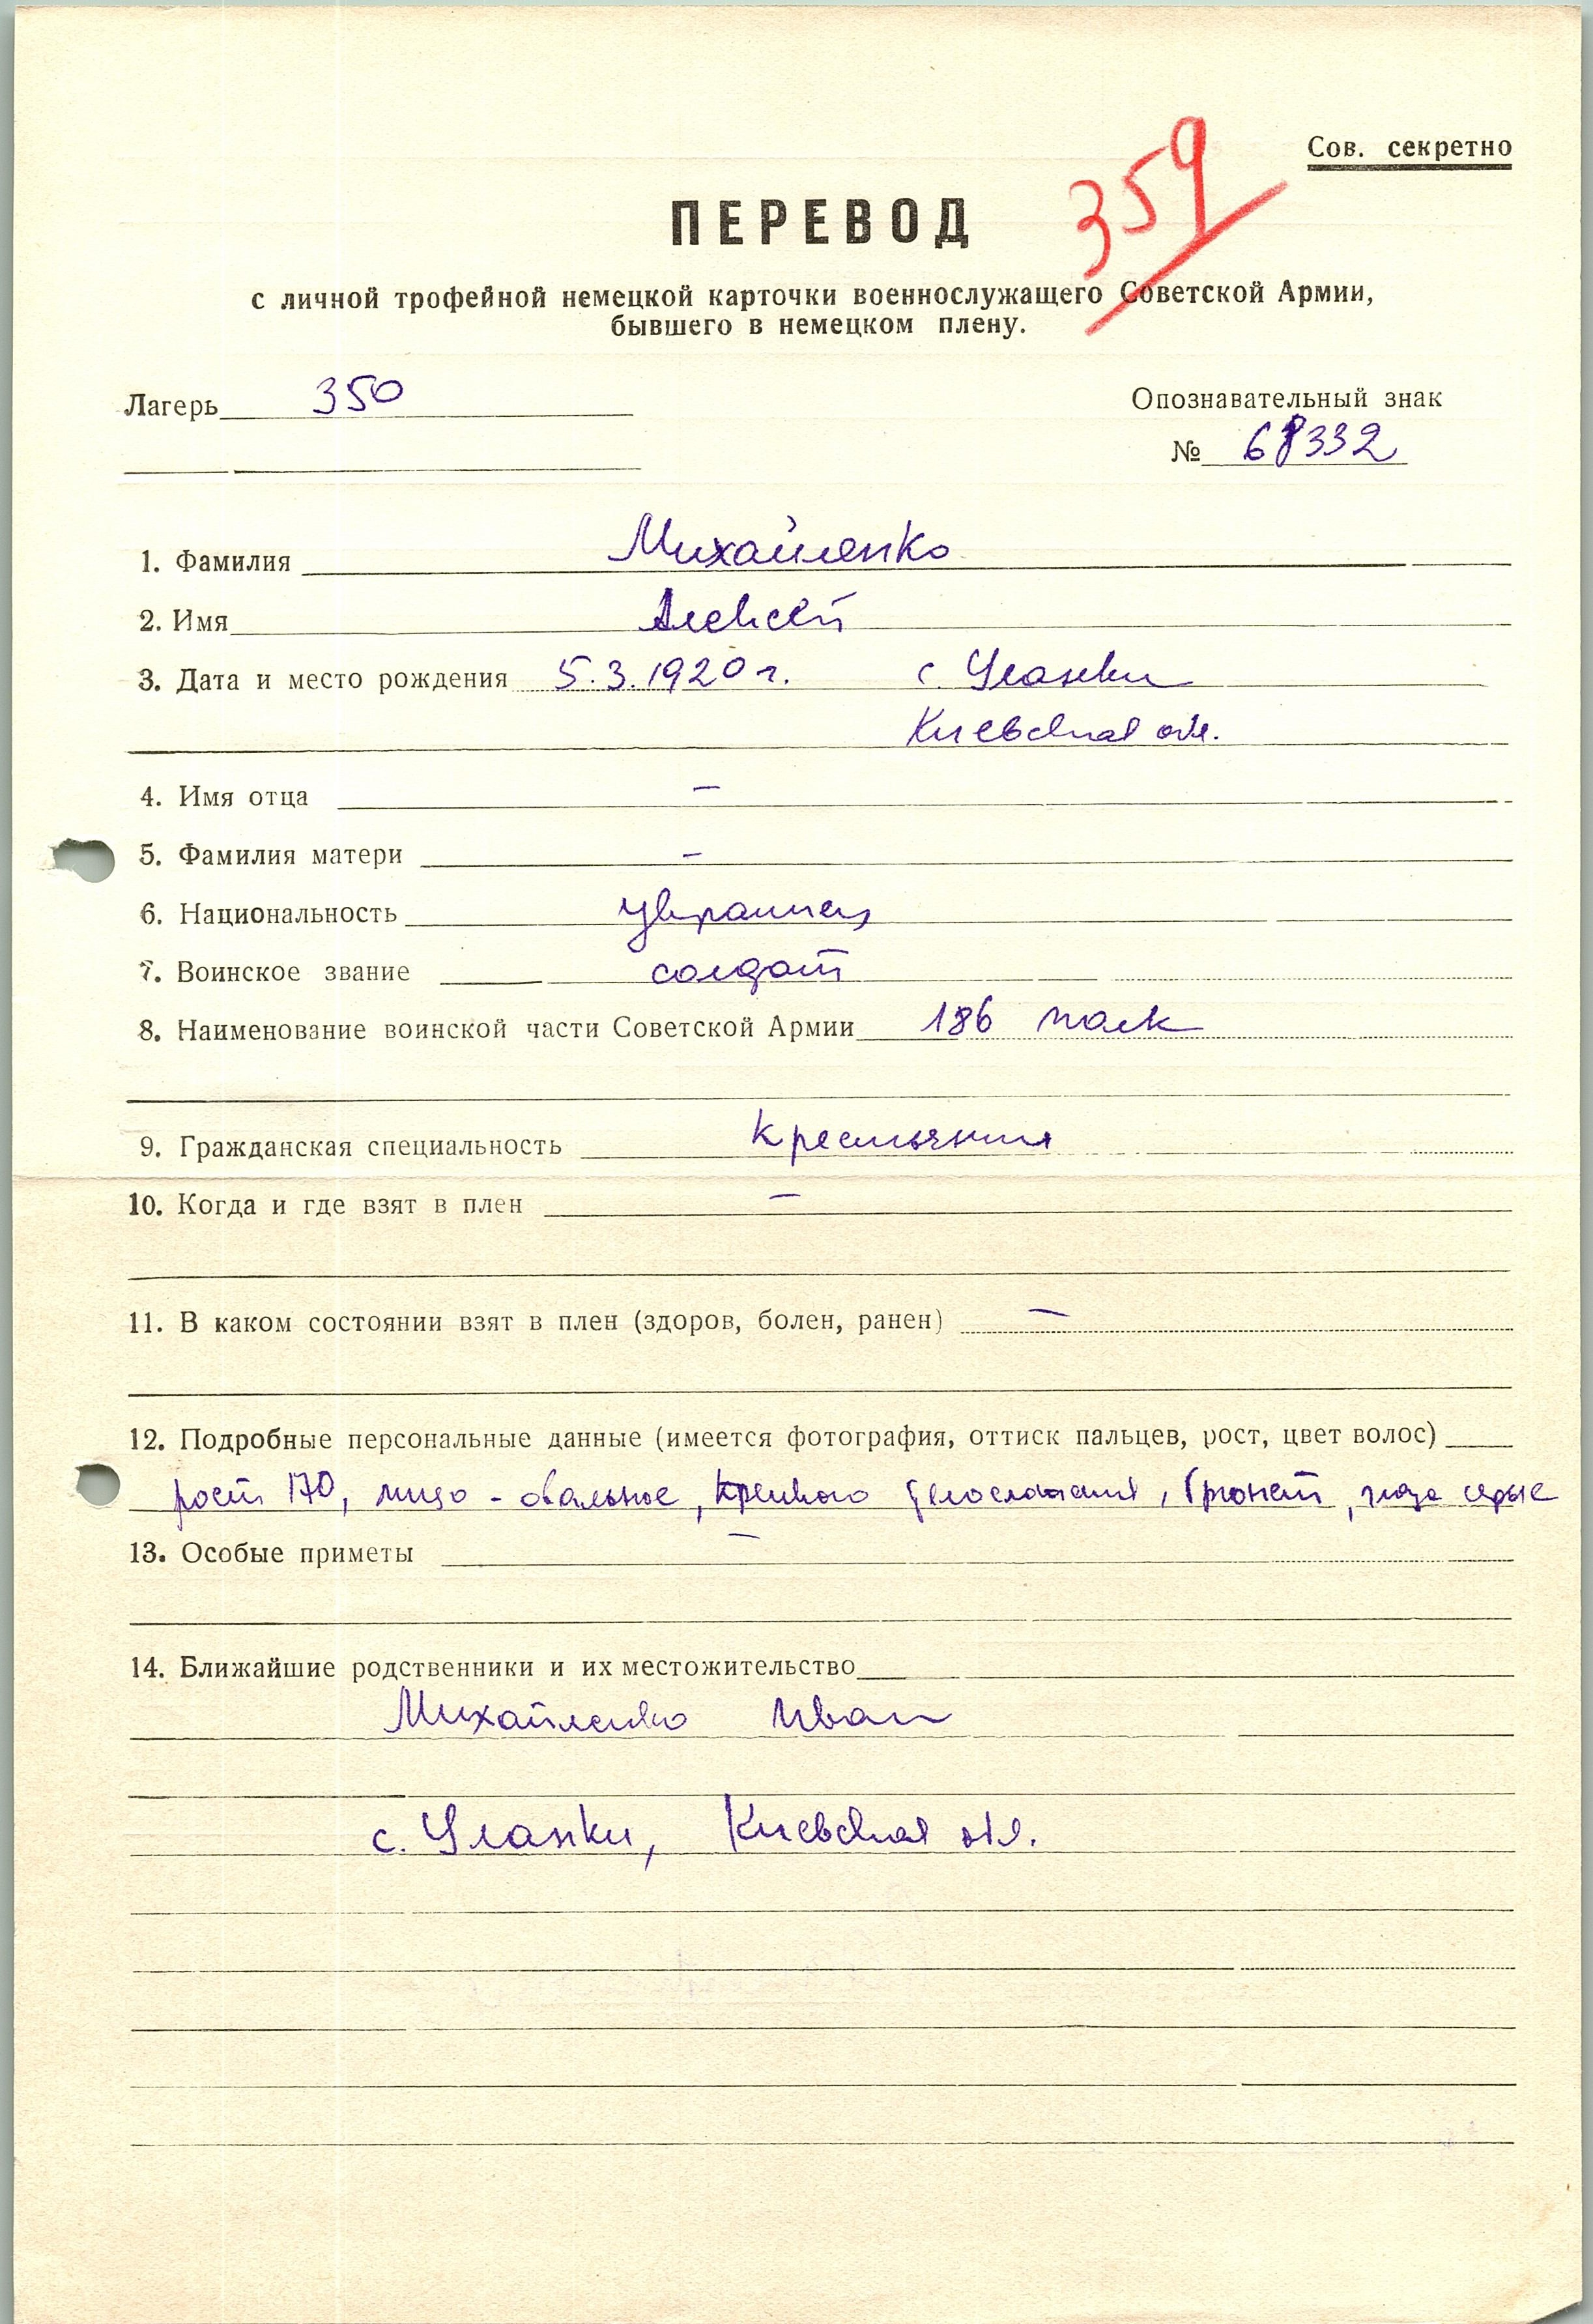 359
Сов. секретно
ПЕРЕВОД
с личной трофейной немецкой карточки военнослужащего Советской Армии,
бывшего в немецком плену.
Лагерь 350
Опознавательный знак
№ 68332
1. Фамилия Михайленко
2. Имя Алексей
3. Дата и место рождения 5.3.1920 г. с. Уланки
Киевская обл.
4. Имя отца –
5. Фамилия матери –
6. Национальность украинец
7. Воинское звание солдат
8. Наименование воинской части Советской Армии 186 полк
9. Гражданская специальность крестьянин
10. Когда и где взят в плен –
11. В каком состоянии взят в плен (здоров, болен, ранен) –
12. Подробные персональные данные (имеется фотография, оттиск пальцев, рост, цвет волос)
рост 170, лицо - овальное, крепкого телосложения, брюнет, глаза серые
13. Особые приметы –
14. Ближайшие родственники и их местожительство
Михайленко Иван
с. Уланки, Киевская обл.